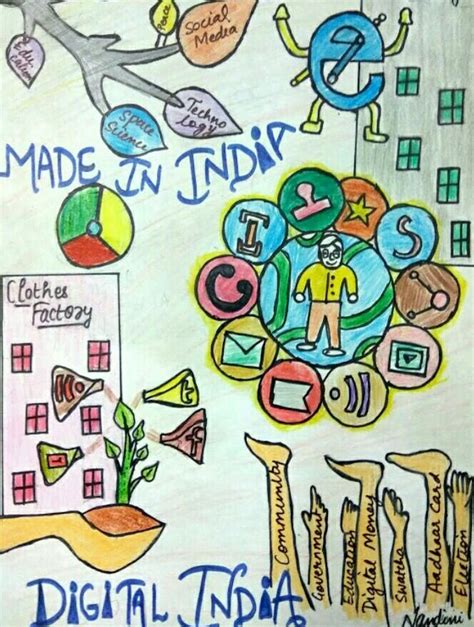 Edu
cation
Peace
Social
Media
Space
Science
Techno
logy
e
MADE IN INDIA
I
S
G
Clothes
Factory
f
Community
Government
Education
Digital Money
Swatcha
Aadhaar Card
Election
DIGITAL INDIA
Nandini